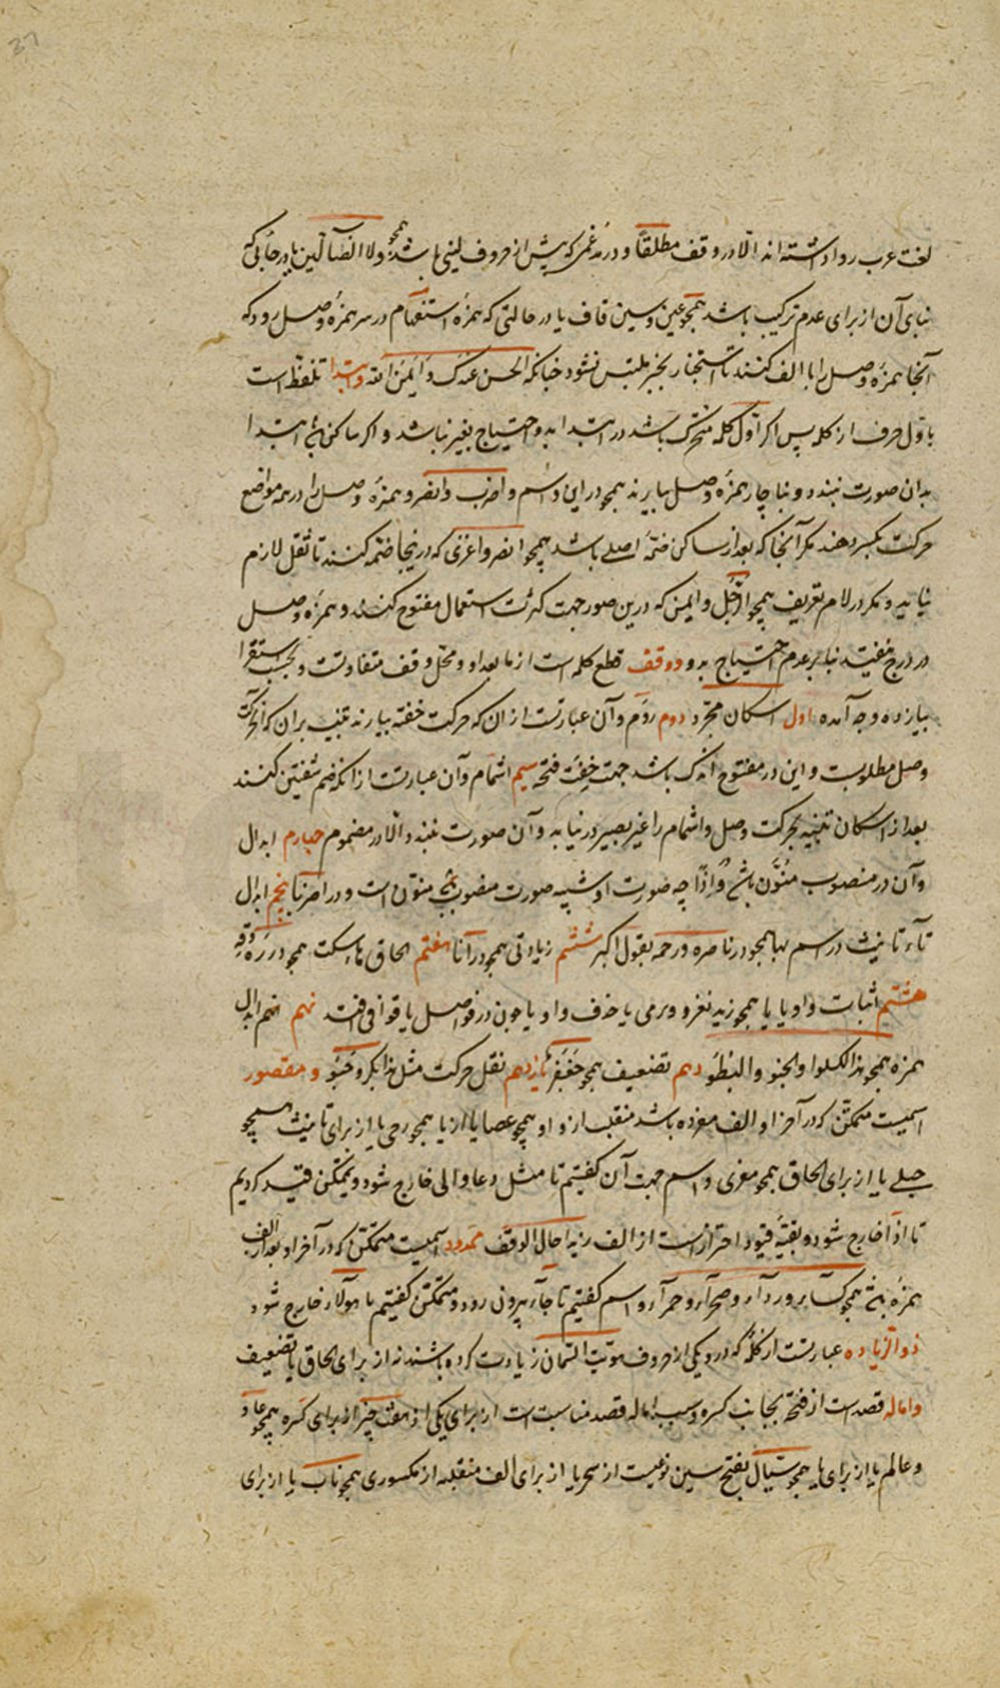 37
لغت عرب روا داشته‌اند الا در وقف مطلقا و در مدغمی که پیش از حروف لینی باشد همچو ولا الضآلین یا در جائی که
بنای آن از برای عدم ترکیب باشد همچو عین و سین قاف یا در حالتی که همزهٔ استفهام در سر همزهٔ وصل رود که
آنجا همزهٔ وصل را با الف کنند تا استخبار بخبر ملتبس نشود چنانکه الحسن عندک و ایمن الله و ابتدا تلفظ است
باول حرف از کلمه پس اگر اول کلمه متحرک باشد در ابتدا بدو احتیاج بغیر نباشد و اگر ساکن ابتدا
بدان صورت نبندد و ناچار همزهٔ وصل بیارند همچو در ابن و اسم و اضرب و انصر و همزهٔ وصل را در همه مواضع
حرکت بکسر دهند مگر آنجا که بعد از ساکن ضمهٔ اصلی باشد همچو انصر و اغزی که درینجا ضمه کنند تا ثقل لازم
نیاید و مگر در لام تعریف همچو الرجل و ایمن که درین صور جهت کثرت استعمال مفتوح کنند و همزهٔ وصل
در درج بیفتد بنا بر عدم احتیاج بدو و وقف قطع کلمه است از ما بعد او و محل وقف متفاوتست و بحسب استقرا
بیازده وجه آمده اول اسکان مجرد دوم روم و آن عبارتست از آن که حرکت خفته بیارند تنبیه بر آن که حرکت
وصل مطلوبست و این در مفتوح اندک باشد جهت خفت فتحه سیم اشمام و آن عبارتست از آنکه ضم شفتین کنند
بعد از اسکان تنبیه بحرکت وصل و اشمام را غیر بصیر در نیابد و آن صورت نبندد الا در مضموم چهارم ابدال
و آن در منصوب منون باشد و اذا چه صورت او شبیه صورت منصوب منون است و در اضربا پنجم ابدال
تاء تانیث در اسم بها همچو در ناصره و رحمه بقول اکثر ششم زیادتی همچو در انا هفتم الحاق هاء سکت همچو در ره و قه
هشتم اثبات واو یا یا همچو زید یغزو و یرمی یا حذف واو یا چون در فواصل یا قوافی افتد نهم ابدال
همزه همچو هذا الکلوا و الخبو و البطو دهم تضعیف همچو جعفر یازدهم نقل حرکت مثل هذا بکر و خبو و مقصور
اسمیست متمکن که در آخر او الف مفرده باشد منقلب از واو همچو عصا یا از یا همچو رحی یا از برای تانیث همچو
حبلی یا از برای الحاق همچو معزی و اسم جهت آن گفتیم تا مثل دعا و الی خارج شود و بمتمکن قید کردیم
تا اذا خارج شود و بقیهٔ قیود احترازست از الف زیدا حال الوقف ممدود اسمیست متمکن که در آخر او بعد الف
همزه باشد همچو کسآء و ردآء و صحرآء و حمرآء و اسم گفتیم تا جآء بیرون رود و متمکن گفتیم تا هولآء خارج شود
ذو الزیاده عبارتست از کلمهٔ که در و یکی از حروف هویت السمان زیادت کرده باشند نه از برای الحاق یا تضعیف
و اماله قصد است از فتحه بجانب کسره و سبب اماله قصد مناسبت است از برای یکی از هفت چیز از برای کسره همچو عماد
و عالم یا از برای یا همچو سیال بفتح سین نوعیست از شجر یا از برای الف منقلبه از مکسوری همچو ناب یا از برای